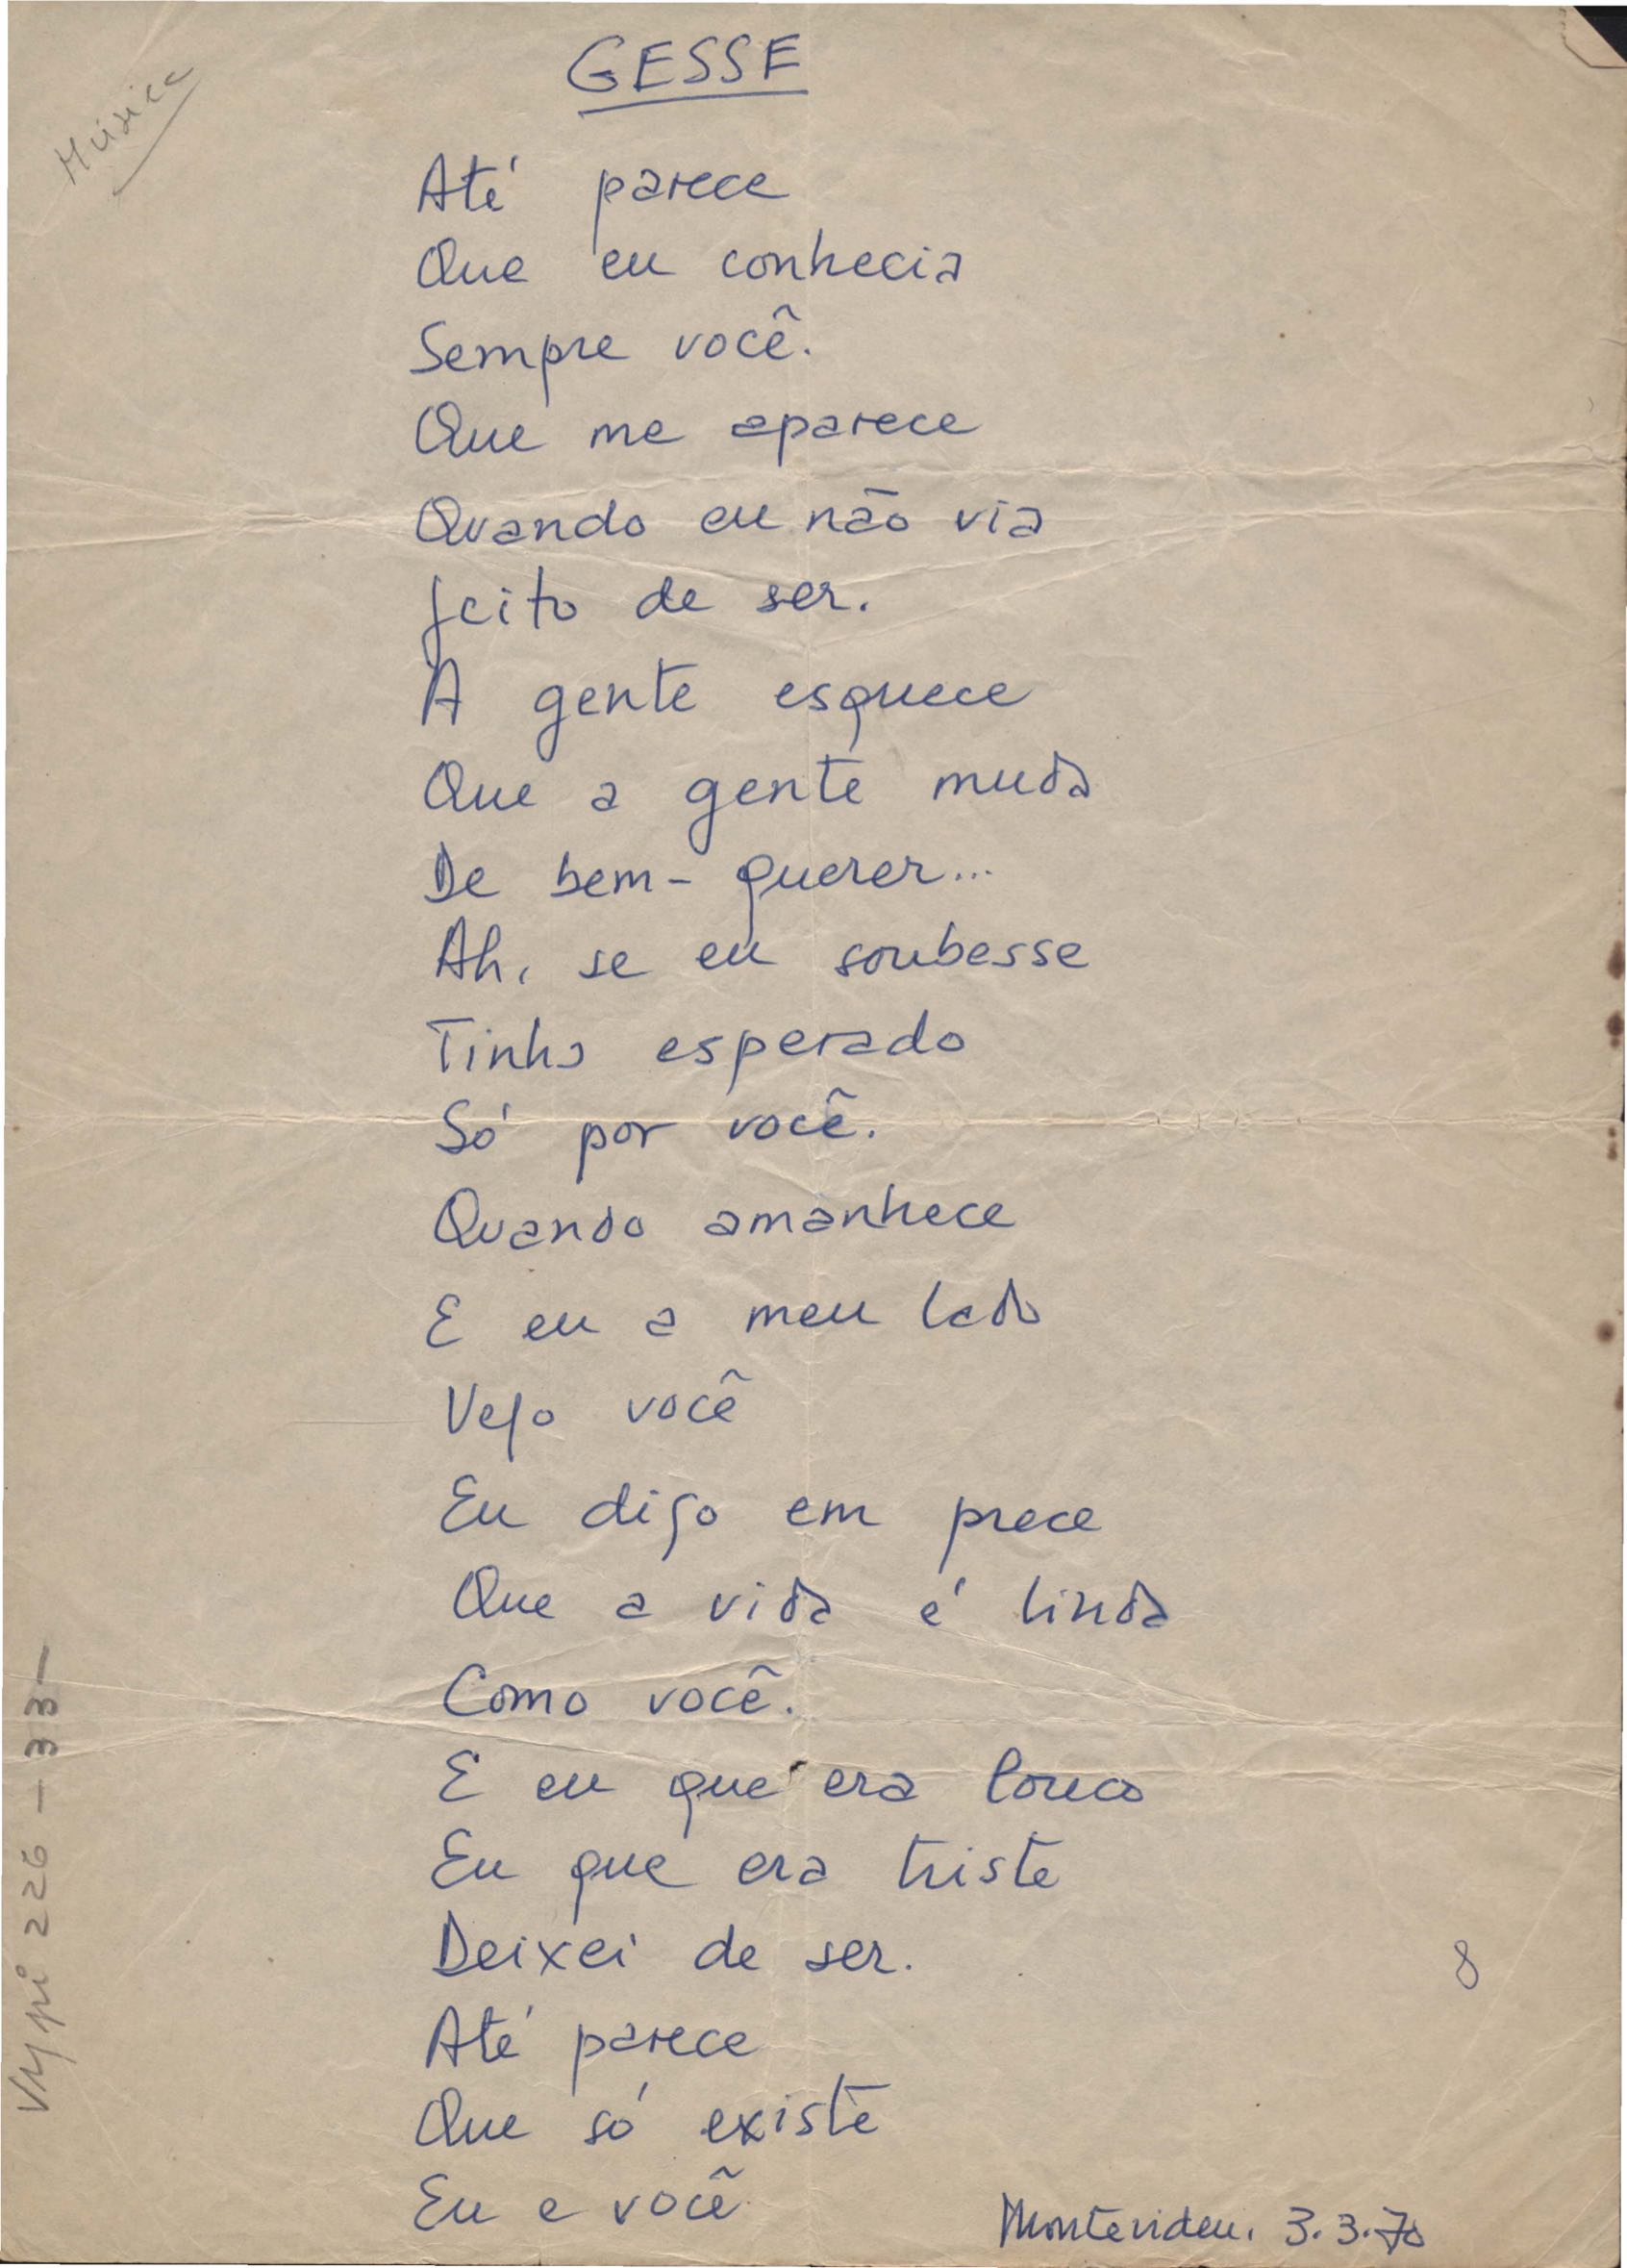 GESSE
Música
Até parece
Que eu conhecia
Sempre você.
Que me aparece
Quando eu não via
Jeito de ser.
A gente esquece
Que a gente muda
De bem-querer...
Ah, se eu soubesse
Tinha esperado
Só por você.
Quando amanhece
E eu a meu lado
Vejo você
Eu digo em prece
Que a vida é linda
Como você.
E eu que era louco
Eu que era triste
Deixei de ser.
Até parece
Que só existe
Eu e você
Montevideu, 3.3.70
8
VM pi 226 - 33 -